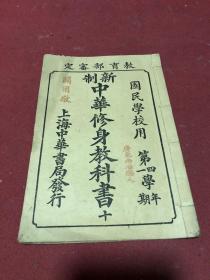 教育部審定
國民學校用
第四學年
第一學期
新制
中華修身教科書 十
上海中華書局發行